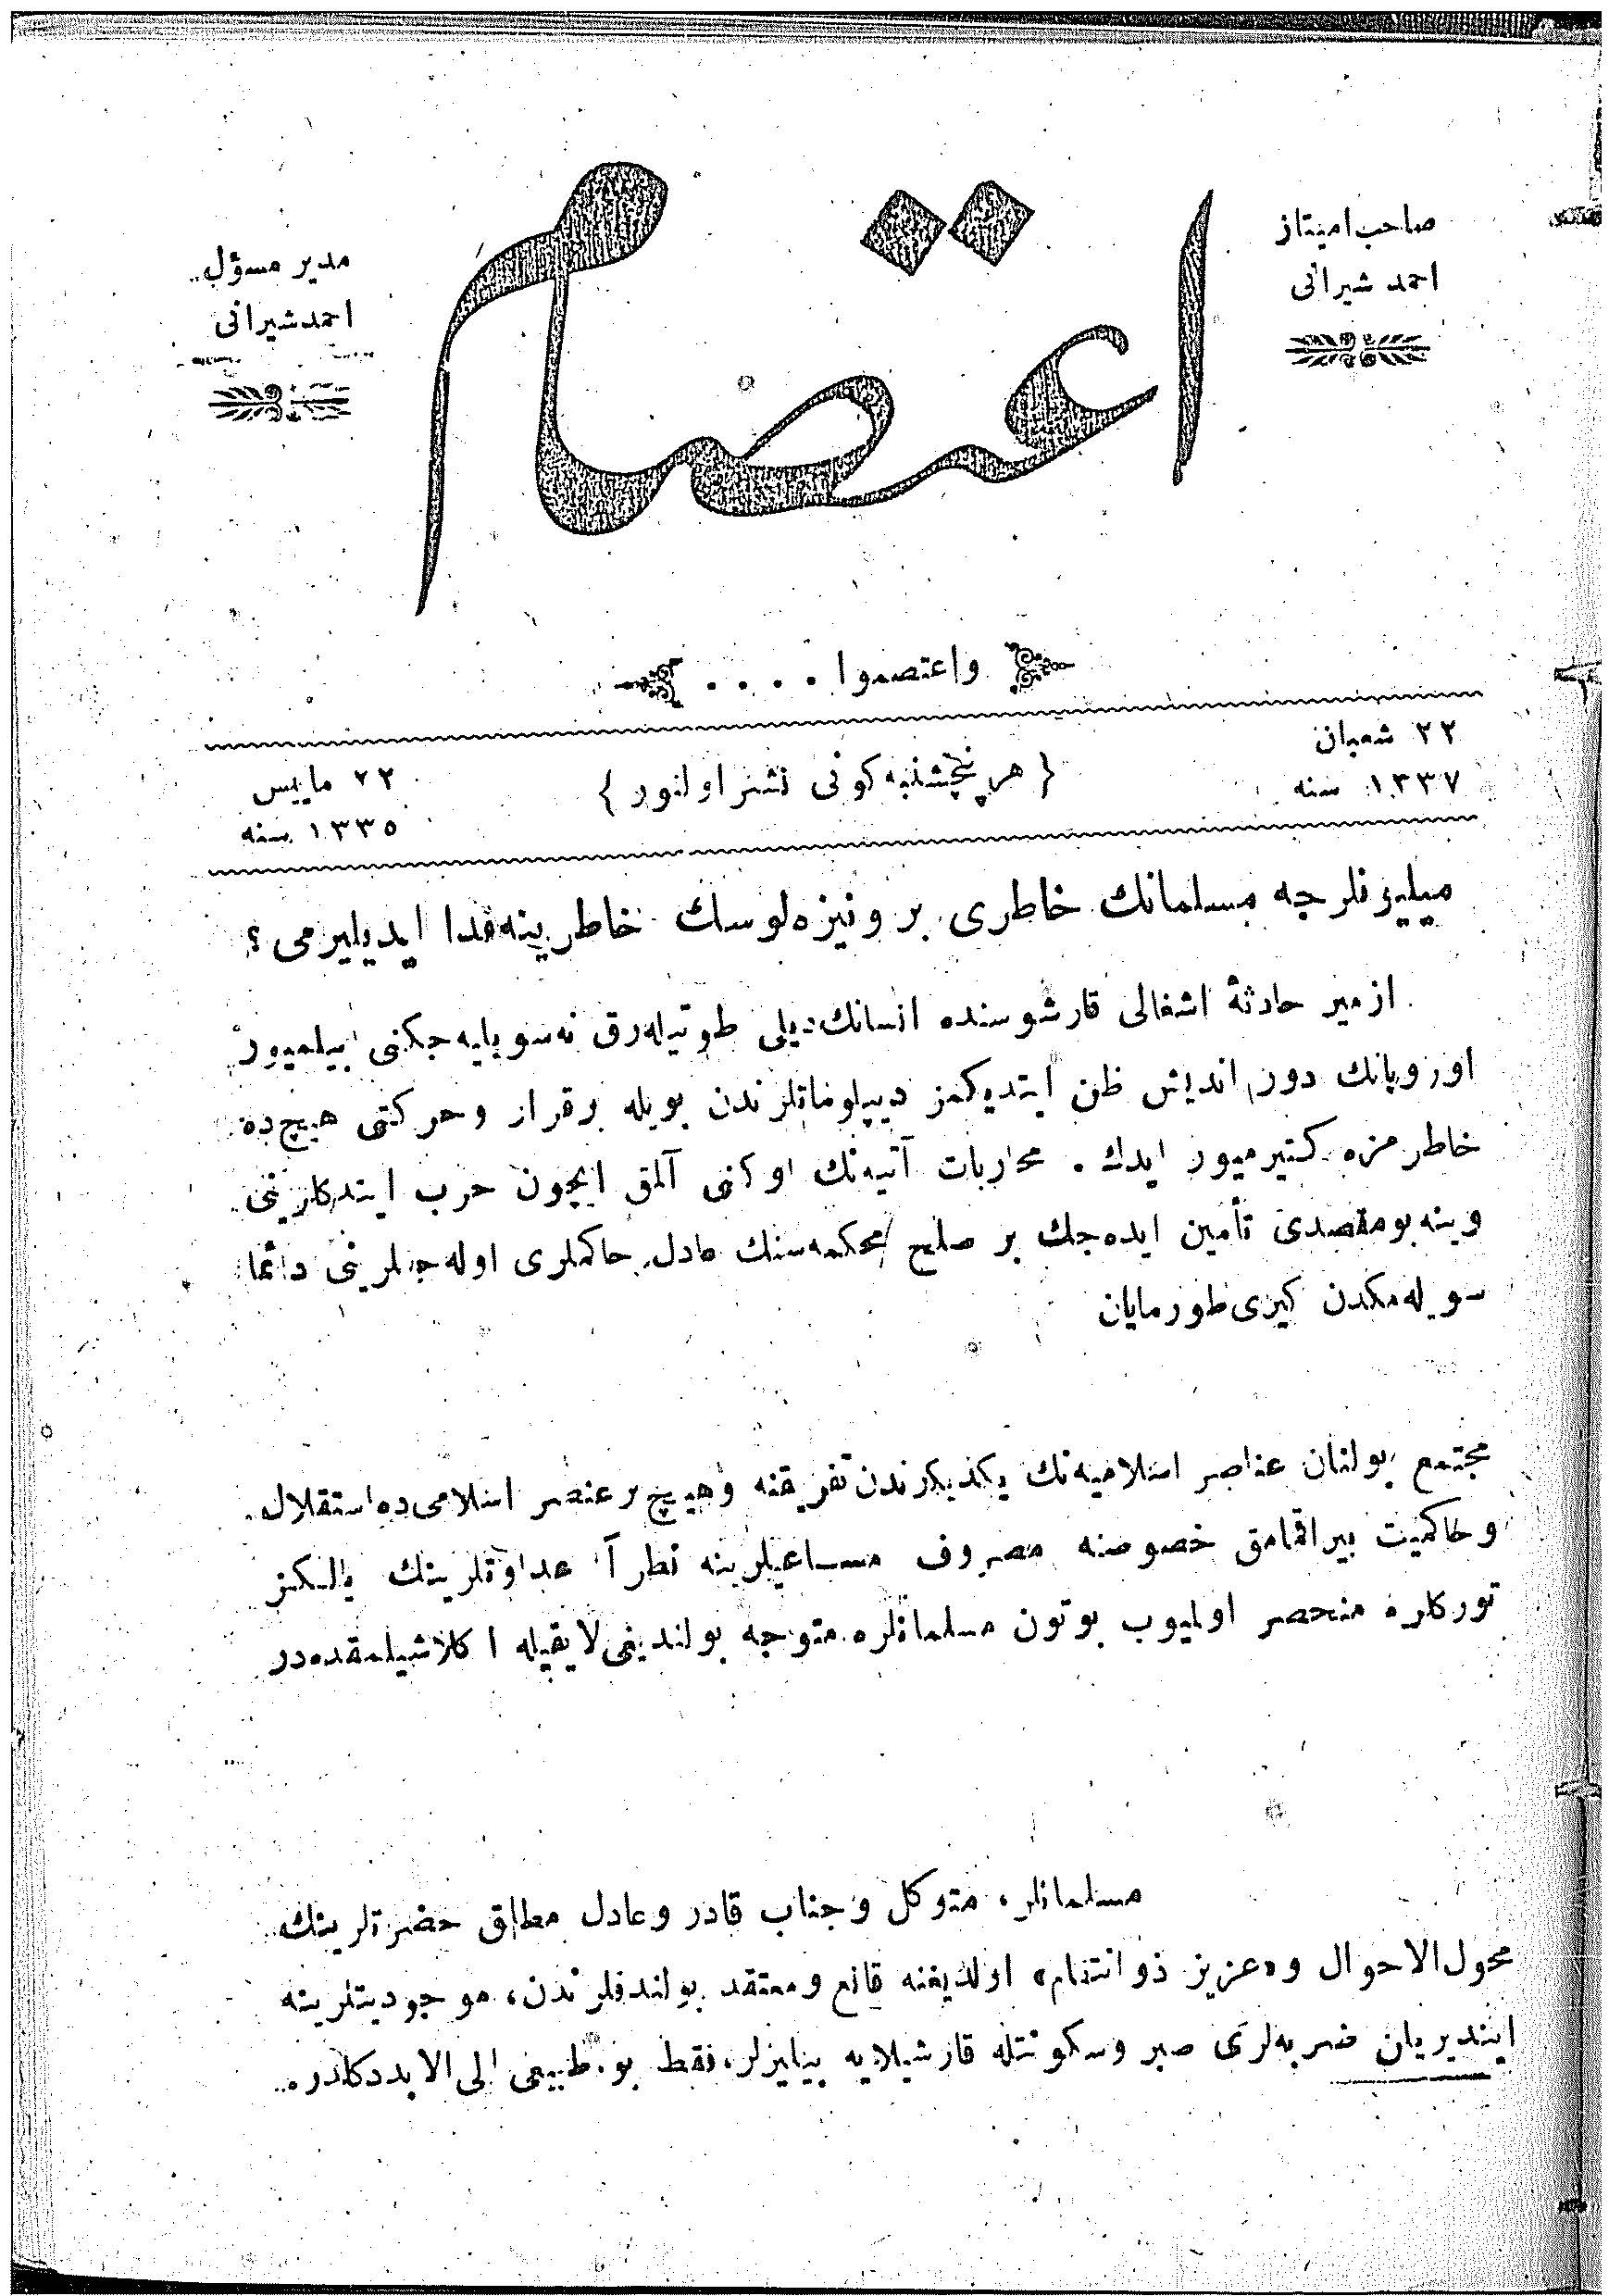 صاحب امتياز
احمد شيرانى
مدير مسؤل
احمد شيرانى
اعتصام
واعتصموا . . . .
٢٢ شعبان
١٣٣٧ سنه
{ هر پنچشنبه كونى نشر اولنور }
٢٢ مايیس
١٣٣٥ سنه
ميليونلرجه مسلمانك خاطرى بر ونيزه‌لوسك خاطرينه فدا ايديليرمى ؟
ازمير حادثۀ اشغالى قارشوسنده انسانك ديلى طوتيله‌رق نه سويليه‌جكنى بيلميور
اوروپانك دور انديش ظن ايتديكمز ديپلوماتلرندن بويله برقرار وحركتى هيچ ده
خاطرمزه كتيرميور ايدك . محاربات آتيه‌نك اوكنى آلمق ايچون حرب ايتدكلرينى
وينه بومقصدى تأمين ايده‌جك بر صلح محكمه‌سنك عادل حاكملرى اوله‌جقلرينى دائما
سويله‌مكدن كيرى طورمايان
مجتمع بولنان عناصر اسلاميه‌نك يكديكرندن تفريقنه وهيچ بر عنصر اسلامى‌ده استقلال
وحاكميت بيراقمامق خصوصنه مصروف مساعيلرينه نظراً عداوتلرينك يالكز
توركلره منحصر اوليوب بوتون مسلمانلره متوجه بولنديغى لايقيله اكلاشيلمقده‌در
مسلمانلر، متوكل وجناب قادر وعادل مطلق حضرتلرينك
محول‌الاحوال و«عزيز ذوانتقام» اولديغنه قانع ومعتقد بولندقلرندن، موجوديتلرينه
اينديريلن ضربه‌لرى صبر وسكونتله قارشيلايه بيليرلر، فقط بو. طبيعى الى الابد دكلدر.